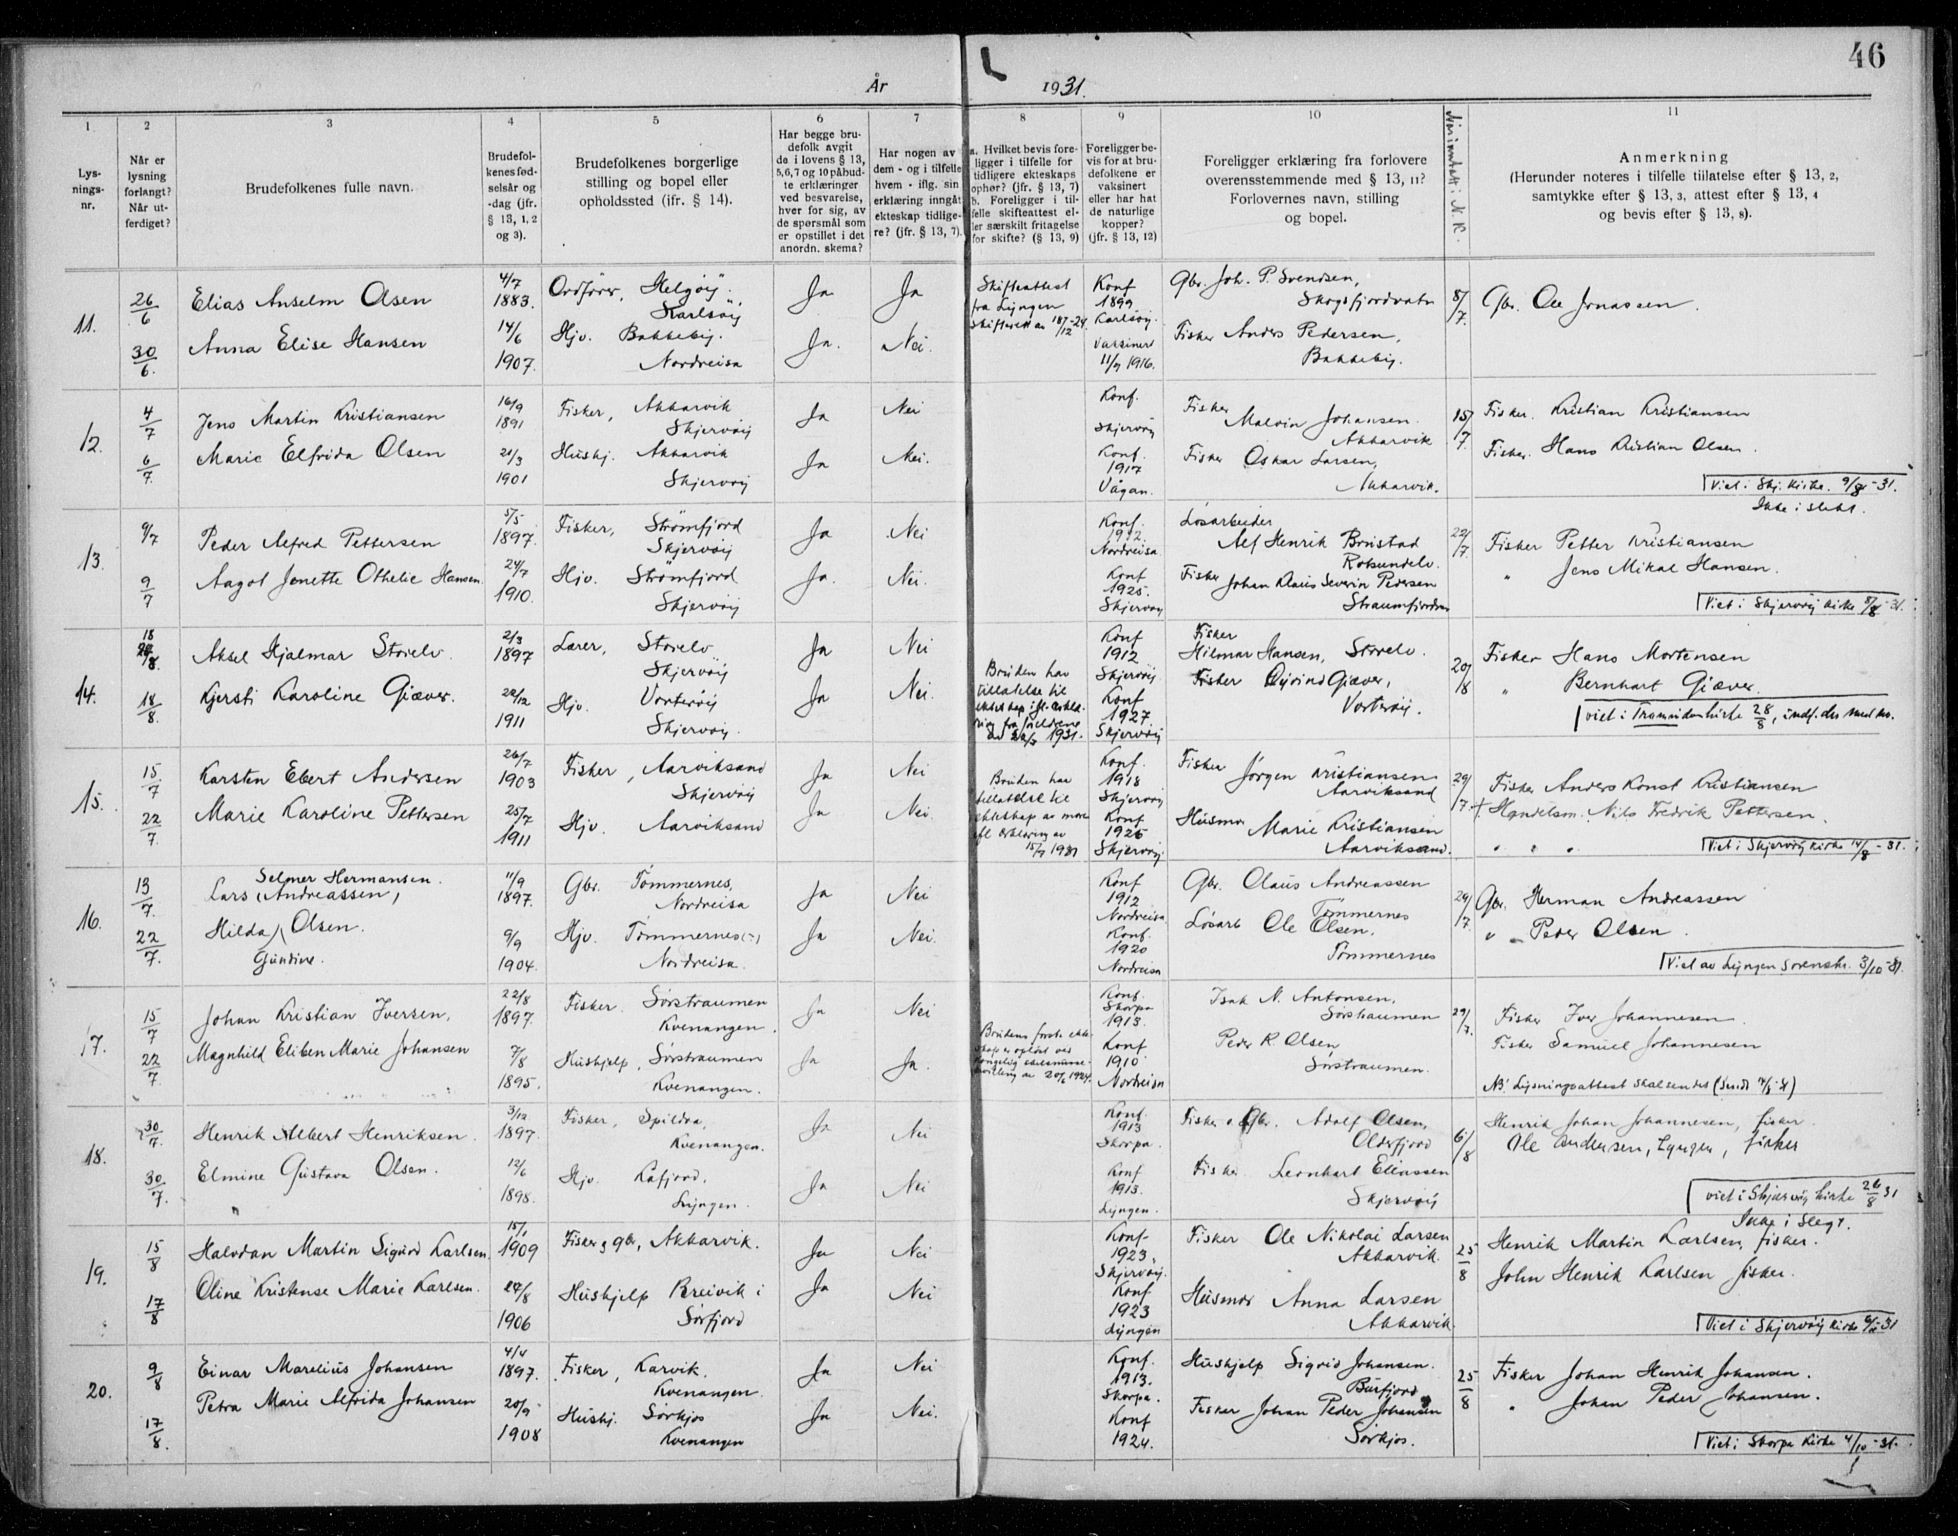 46
År 1931.
1. 2 3 4 5 6 7 8 9 10 11
Lysningsnr.
Når er lysning forlangt? Når utferdiget?
Brudefolkenes fulle navn.
Brudefolkenes fødselsår og -dag (jfr. § 13, 1, 2 og 3).
Brudefolkenes borgerlige stilling og bopel eller opholdssted (ifr. § 14).
Har begge brudefolk avgit de i lovens § 13, 5, 6, 7 og 10 påbudte erklæringer ved besvarelse, hver for sig, av de spørsmål som er opstillet i det anordn. skema?
Har nogen av dem - og i tilfelle hvem - iflg. sin erklæring inngåt ekteskap tidligere? (jfr. § 13, 7).
a. Hvilket bevis foreligger i tilfelle for tidligere ekteskaps ophør? (jfr. § 13, 7) b. Foreligger i tilfelle skifteattest eller særskilt fritagelse for skifte? (§ 13, 9)
Foreligger bevis for at brudefolkene er vaksinert eller har hat de naturlige kopper? (jfr. § 13, 12)
Foreligger erklæring fra forlovere overensstemmende med § 13, 11? Forlovernes navn, stilling og bopel.
Anmerkning
(Herunder noteres i tilfelle tillatelse efter § 13, 2, samtykke efter § 13, 3, attest efter § 13, 4 og bevis efter § 13, 8).
11.
26/6 Elias Anselm Olsen 4/7 1883. Ordfører, Helgøy. Karlsøy Ja Ja
Skifteattest fra Lyngen
Konf 1899 Karlsøy.
Gbr. Joh. P. Svendsen, Skogsfjordvatn 8/7. Gbr. Ole Jonassen
30/6. Anna Elise Hansen 14/6 1907. Hjv. Bakkeby. Nordreisa Ja. Nei.
Vaksinert 1916.
Fisker Anders Pedersen, Bakkeby.
12.
4/7 Jens Martin Kristiansen 16/9 1891 Fisker, Akkarvik Skjervøy Ja Nei
Konf. Skjervøy
Fisker Malvin Johansen. Akkarvik 15/7 Fisker. Kristian Kristiansen
6/7. Marie Elfrida Olsen 21/3 1901 Hushj. Akkarvik Skjervøy Ja Nei.
Konf. 1917 Vågan.
Fisker Oskar Larsen, Akkarvik.
Fisker. Hans Kristian Olsen.
Viet i Skj. kirke. 9/8-31.
Ikke i slekt.
13.
9/7 Peder Alfred Pettersen 5/5 1897. Fisker, Strømfjord Skjervøy Ja Nei
Konf. 1912. Nordreisa.
Løsarbeider Alf Henrik Bonstad Rotsundelv. 22/7. Fisker Petter Kristiansen
9/7 Aagot Jenette Othelie Hansen. 24/7 1910. Hjv. Strømfjord Skjervøy Ja. Nei.
Konf 1925. Skjervøy
Fisker Johan Klaus Severin Pedersen
" Jens Mikal Hansen.
Viet i Skjervøy kirke 8/8-31.
14.
18/8 Aksel Hjalmar Storelv. 2/3 1897 Lærer, Storelv Skjervøy Ja Nei
Konf 1912 Skjervøy
Fisker Hilmar Hansen, Storelv. 20/8 Fisker Hans Mortensen
18/8. Kjersti Karoline Giæver. 22/12 1911 Hjv. Vorterøy Skjervøy. Ja Nei.
Bruden har tillatelse til ekteskap
fra foreldrene 1931.
Konf 1927 Skjervøy
Fisker Øyvind Giæver, Vorterøy.
" Bernhart Giæver.
viet i Tromsødomkirke 28/8,
15.
15/7 Karsten Ebert Andersen 26/7 1903 Fisker, Aarviksand Skjervøy Ja Nei
Konf. 1918 Skjervøy
Fisker Jørgen Kristiansen Aarviksand 29/7. Fisker Anders Konst Kristiansen
22/7. Marie Karoline Pettersen 25/7 1911 Hjv. Aarviksand Ja Nei
Bruden har tillatelse til ekteskap av mor
erklæring av 15/7 1931
Konf 1926 Skjervøy.
Husmor Marie Kristiansen Aarviksand.
+ Handelsm. Nils Fredrik Pettersen.
" " "
Viet i Skjervøy kirke 14/8-31.
16.
13/7. Selmer Hermansen.
Lars (Andreassen, 11/9 1897. Gbr. Tømmernes, Nordreisa Ja Nei
Konf 1912 Nordreisa
Gbr. Claus Andreassen Tømmernes 29/7. Gbr. Herman Andreassen
22/7. Hilda Olsen. Gundine. 9/9 1904. Hjv. Tømmernes Nordreisa. Ja Nei.
Konf. 1920 Nordreisa
Løsarb Ole Olsen. Tømmernes
" Peder Olsen.
Viet av Lyngen sorenskr. 3/10-31.
17.
15/7 Johan Kristian Iversen, 22/8 1897. Fisker. Sørstraumen Kvenangen. Ja Nei
Konf. Skorpa 1913.
Isak N. Antonsen. Sørstraumen 29/7. Fisker Iver Johannesen
22/7 Magnhild Eliben Marie Johansen 7/8 1895. Hushjelp, Sørstraumen Kvenangen. Ja Ja.
Brudens første ekteskap er opløst ved kongelig
1924.
Konf 1910. Nordreisa
Peder R. Olsen Sørstraumen.
Fisker Samuel Johannesen
NB! Lysningsattest skal sendes
18.
30/7. Henrik Albert Henriksen. 3/12 1897. Fisker, Spildra, Kvenangen. Ja Nei
Konf. 1913 Skorpa.
Fisker o Gbr. Adolf Olsen, Olderfjord 6/8 Henrik Johan Johannesen, fisker.
30/7. Elmine Gustava Olsen. 12/6 1898. Hjv. Kåfjord. Lyngen. Ja Nei
Konf 1913. Lyngen.
Fisker Leonhart Eliassen Skjervøy
Ole Andersen, Lyngen, fisker
viet i Skjervøy kirke 26/8 31
Ikke i slegt.
19.
15/8 Halvdan Martin Sigurd Karlsen. 15/1 1909 Fisker g gbr, Akkarvik. Ja Nei
Konf- 1923. Skjervøy.
Fisker Ole Nikolai Larsen Akkarvik. 25/8 Henrik Martin Karlsen, fisker.
17/8 Oline Kristense Marie Karlsen. 24/8 1906 Hushjelp Breivik i Sørfjord Ja Nei
Konf 1923 Lyngen
Husmor Anna Larsen Akkarvik.
John Henrik Karlsen fisker.
Viet i Skjervøy kirke 31
20.
9/8 Einar Marelius Johansen 4/4 1897. Fisker, Karvik. Kvenangen. Ja Nei
Konf. 1913. Skorpa.
Hushjelp Sigrid Johansen. Burfjord 25/8 Fisker Johan Henrik Johansen.
17/8. Petra Marie Alfrida Johansen 20/9 1908 Hushj. Sørkjos Kvenangen Ja Nei.
Konf 1924.
Fisker Johan Peder Johansen Sørkjos.
" Johan Peder Johansen.
Viet i Skorpa kirke 4/10-31.